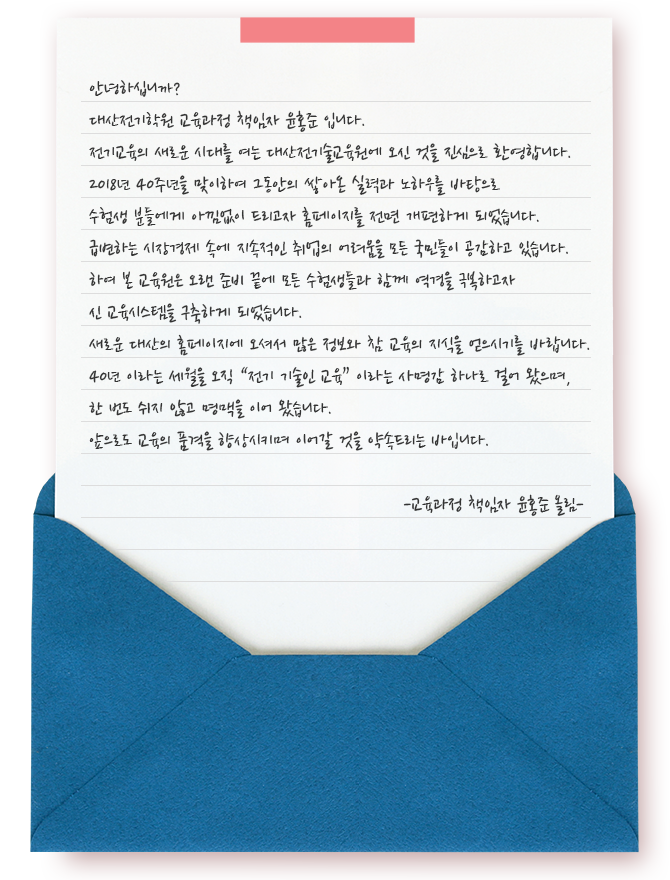 안녕하십니까?
대산전기학원 교육과정 책임자 윤홍준 입니다.
전기교육의 새로운 시대를 여는 대산전기술교육원에 오신 것을 진심으로 환영합니다.
2018년 40주년을 맞이하여 그동안의 쌓아온 실력과 노하우를 바탕으로
수험생 분들에게 아낌없이 드리고자 홈페이지를 전면 개편하게 되었습니다.
급변하는 시장경제 속에 지속적인 취업의 어려움을 모든 국민들이 공감하고 있습니다.
하여 본 교육원은 오랜 준비 끝에 모든 수험생들과 함께 역경을 극복하고자
신 교육시스템을 구축하게 되었습니다.
새로운 대산의 홈페이지에 오셔서 많은 정보와 참 교육의 지식을 얻으시기를 바랍니다.
40년 이라는 세월을 오직 “전기 기술인 교육” 이라는 사명감 하나로 걸어 왔으며,
한 번도 쉬지 않고 명맥을 이어 왔습니다.
앞으로도 교육의 품격을 향상시키며 이어갈 것을 약속드리는 바입니다.
-교육과정 책임자 윤홍준 올림-